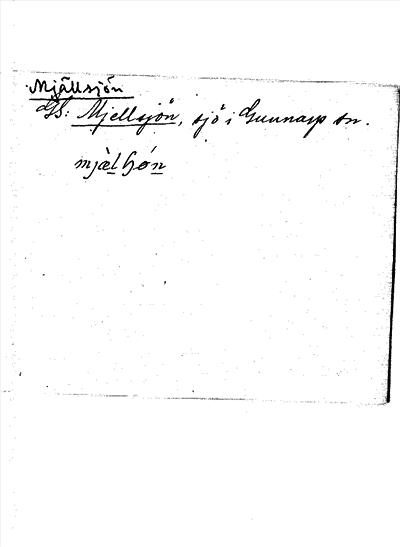 Mjällsjön
GS: Mjellsjön, sjö i Gunnarp sn.
mjæ̀lɧǿn